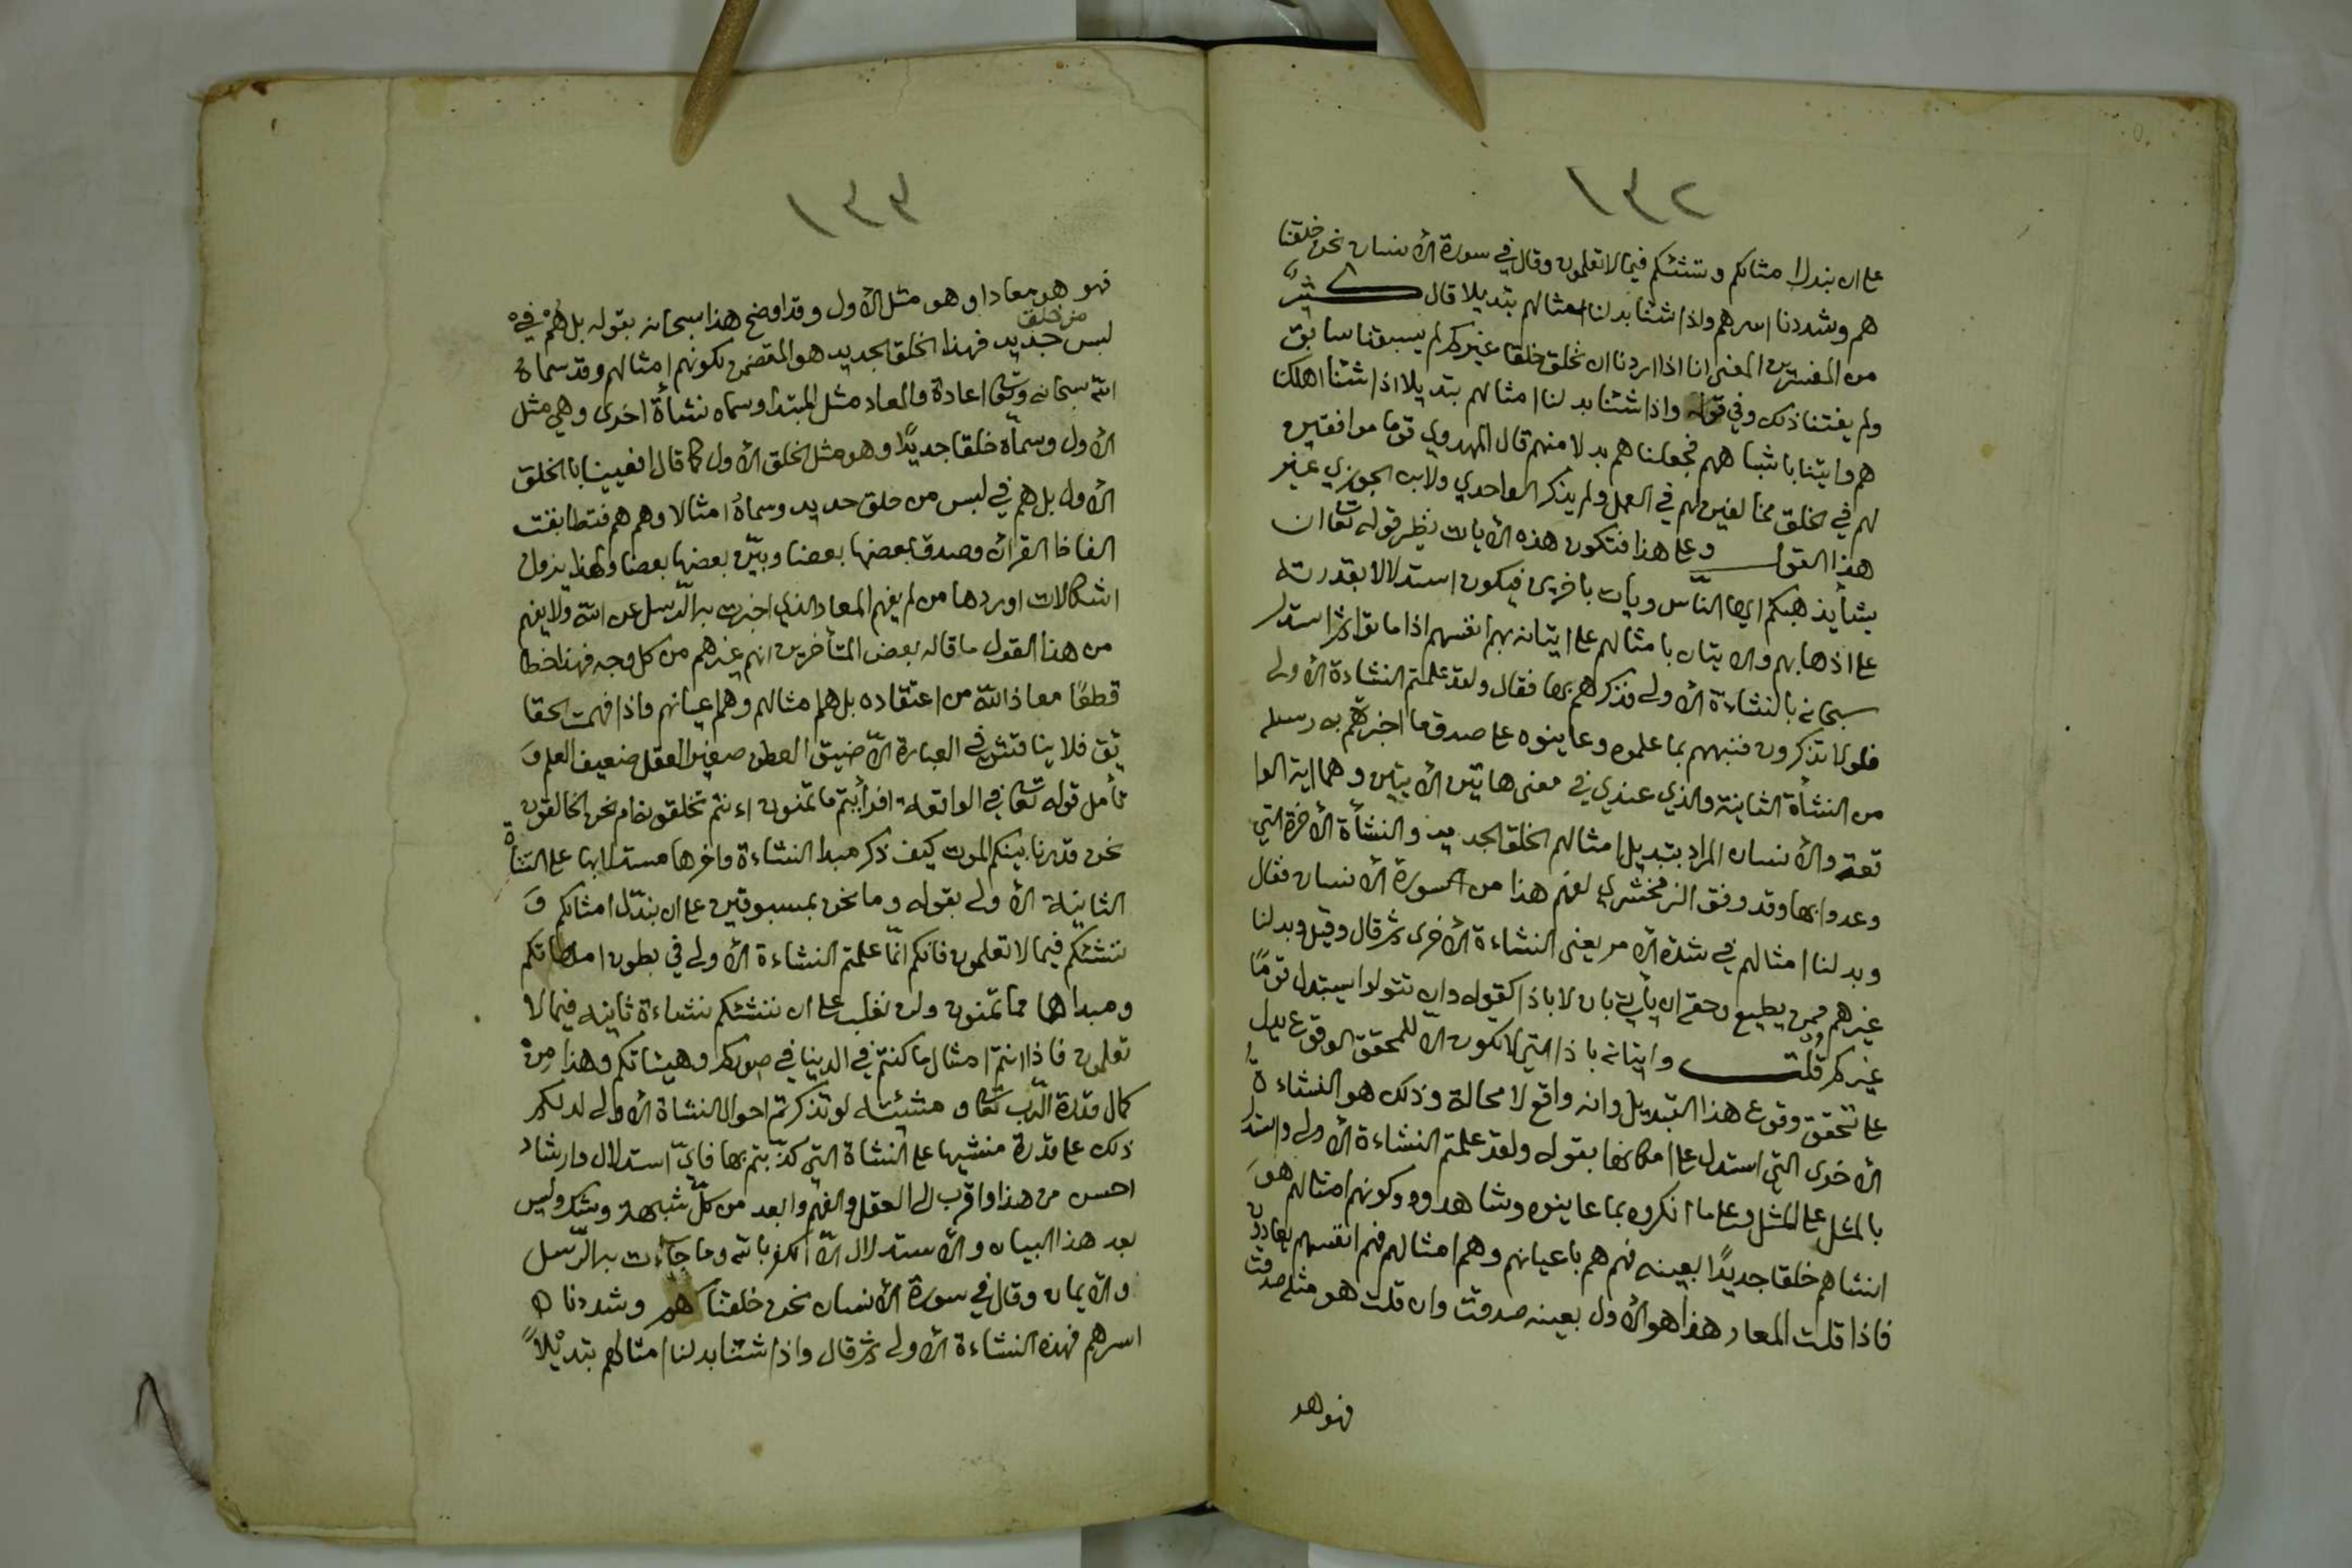 ١٣٢
على ان نبدل امثالكم وننشئكم فيما لا تعلمون وقال في سورة الانسان نحن خلقنا
هم وشددنا اسرهم واذا شئنا بدلنا امثالهم تبديلا قال كثير
من المفسرين المعنى انا اذا اردنا ان نخلق خلقا غيركم لم يسبقنا سابق
ولم يفتنا ذلك وفي قوله واذا شئنا بدلنا امثالهم تبديلا اذا شئنا اهلكنا
هم واتينا باشباههم فجعلناهم بدلا منهم قال المهدوي قوما موافقين
لهم في الخلق مخالفين لهم في العمل ولم يذكر الواحدي ولا ابن الجوزي غير
هذا القول وعلى هذا فتكون هذه الايات نظير قوله تعا ان
يشأ يذهبكم ايها النّاس ويأت باخرين فيكون استدلالا بقدرته
على اذهابهم والاتيان بامثالهم على اتيانه بهم انفسهم اذا ماتوا ثم استدل
سبحانه بالنشاءة الاولى فذكرهم بها فقال ولقد علمتم النشاءة الاولى
فلولا تذكرون فنبههم بما علموه وعاينوه على صدق ما اخبرتهم به رسله
من النشأة الثانية والذي عندي في معنى هاتين الايتين وهما اية الوا
قعة والانسان المراد بتبديل امثالهم الخلق الجديد والنشأة الاخرة التي
وعدوا بها وقد وفق الزمخشري لفهم هذا من سورة الانسان فقال
وبدلنا امثالهم في شدة الامر يعني النشاءة الاخرى ثم قال وقيل وبدلنا
غيرهم ممن يطيع وحقه ان يأتي بان لا باذا كقوله وان تتولوا يستبدل قومًا
غيركم قلت واتيانه باذا التي لا تكون الا للمحقق الوقوع يدل
على تحقق وقوع هذا التبديل وانه واقع لا محالة وذلك هو النشاءة
الاخرى التي استدل على امكانها بقوله ولقد علمتم النشاءة الاولى واستدل
بالمثل على المثل وعلى ما انكروه بما عاينوه وشاهدوه وكونهم امثالهم هو
انشاهم خلقا جديدًا بعينه فهم هم باعيانهم وهم امثالهم فهم انفسهم يعادون
فاذا قلت المعاد هذا هو الاول بعينه صدقت وان قلت هو مثله صدقت
فهو هو
١٣٣
فهو هو معادا وهو مثل الاول وقد اوضح هذا سبحانه بقوله بل هم في
من خلق
لبس جديد فهذا الخلق الجديد هو المتضمن لكونهم امثالهم وقد سماه
الله سبحانه وتعا اعادة والمعاد مثل المبتدا وسماه نشأة اخرى وهي مثل
الاول وسماه خلقا جديدًا وهو مثل الخلق الاول كما قال افعيينا بالخلق
الاول بل هم في لبس من خلق جديد وسماه امثالا وهم هم فتطابقت
الفاظ القران وصدق بعضها بعضا وبيّن بعضها بعضا ولهذا يزول
اشكالات اوردها من لم يفهم المعاد الذي اخبرت به الرّسل عن الله ولا يفهم
من هذا القول ما قاله بعض المتأخرين انهم غيرهم من كل وجه فهذا خطا
قطعًا معاذ الله من اعتقاده بل هم امثالهم وهم اعيانهم واذا فهمت الحقا
ئق فلا يناقش في العبارة الا ضيق العطن صغير العقل ضعيف العلم وَ
تأمل قوله تعا في الواقعة افرأيتم ما تمنون اءنتم تخلقونه ام نحن الخالقون
نحن قدرنا بينكم الموت كيف ذكر مبدا النشاءة واخرها مستدلا بها على النشأة
الثانية الاولى بقوله وما نحن بمسبوقين على ان نبدّل امثالكم وَ
ننشئكم فيما لا تعلمون فانكم انّما علمتم النشاءة الاولى في بطون امهاتكم
ومبداها مما تمنون ولن نغلب على ان ننشئكم نشاءة ثانية فيما لا
تعلمون فاذا انتم امثال ما كنتم في الدنيا في صوركم وهيئاتكم وهذا من
كمال قدرة الرّب تعا ومشيئته لو تذكرتم احوال النشاة الاولى لدلكم
ذلك على قدرة منشيها على النشاة التي كذّبتم بها فايّ استدلال وارشاد
احسن من هذا واقرب الى العقل والفهم وابعد من كلّ شبهة وشك وليس
بعد هذا البيان والاستدلال الّا الكفر بالله وما جاءت به الرّسل
والايمان وقال في سورة الانسان نحن خلقناهم وشددنا ه
اسرهم فهذه النشاءة الاولى ثم قال واذا شئنا بدلنا امثالهم تبديلاً